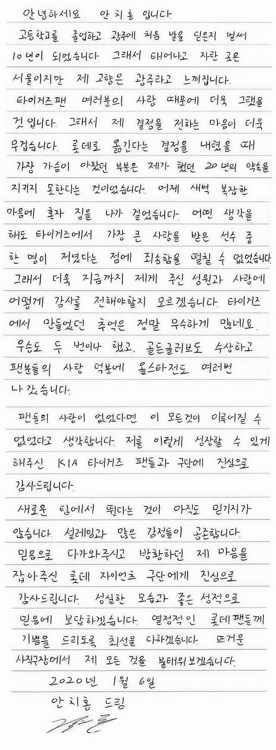 안녕하세요. 안치홍 입니다.
고등학교를 졸업하고 광주에 처음 발을 딛은지 벌써
10년이 되었습니다. 그래서 태어나고 자란 곳은
서울이지만 제 고향은 광주라고 느껴집니다.
타이거즈팬 여러분의 사랑 때문에 더욱 그랬을
것 입니다. 그래서 제 결정을 전하는 마음이 더욱
무겁습니다. 롯데로 옮긴다는 결정을 내렸을 때
가장 가슴이 아팠던 부분은 제가 했던 20년의 약속을
지키지 못한다는 것이었습니다. 어제 새벽 복잡한
마음에 혼자 집을 나가 걸었습니다. 어떤 생각을
해도 타이거즈에서 가장 큰 사랑을 받은 선수 중
한 명이 저였다는 점에 죄송함을 떨칠 수 없었습니다
그래서 더욱 지금까지 제게 주신 성원과 사랑에
어떻게 감사를 전해야할지 모르겠습니다. 타이거즈
에서 만들었던 추억은 정말 무수하게 많네요.
우승도 두 번이나 했고, 골드글러브도 수상하고
팬분들의 사랑 덕분에 올스타전도 여러번
나갔습니다.
팬들의 사랑이 없었다면 이 모든것이 이루어질 수
없었다고 생각합니다. 저를 이렇게 성장할 수 있게
해주신 KIA 타이거즈 팬들과 구단에 진심으로
감사드립니다.
새로운 팀에서 뛴다는 것이 아직도 믿기지가
않습니다. 설레임과 많은 감정들이 공존합니다.
믿음으로 다가와주시고 방황하던 제 마음을
잡아주신 롯데 자이언츠 구단에게 진심으로
감사드립니다. 성실한 모습과 좋은 성적으로
믿음에 보답하겠습니다. 열정적인 롯데팬들께
기쁨을 드리도록 최선을 다하겠습니다. 뜨거운
사직구장에서 제 모든 것을 불태워보겠습니다.
2020년 1월 6일
안치홍 드림